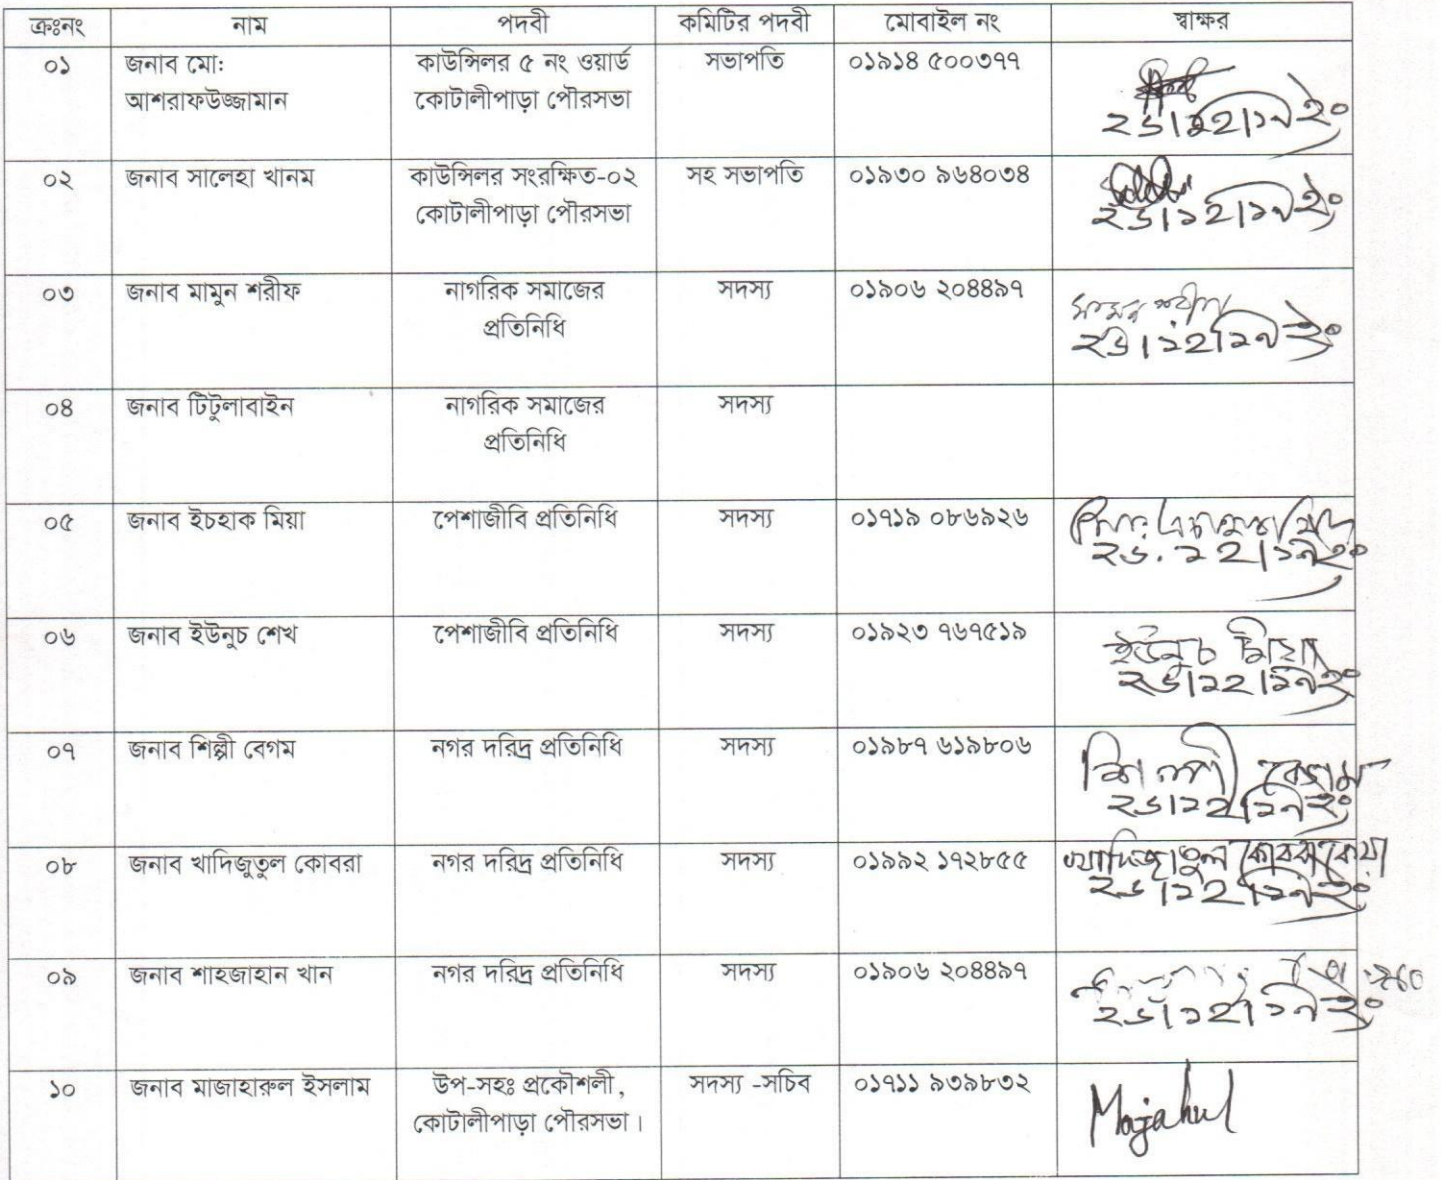 ক্রঃনং নাম পদবী কমিটির পদবী মোবাইল নং স্বাক্ষর
০১ জনাব মো: কাউন্সিলর ৫ নং ওয়ার্ড সভাপতি ০১৯১৪ ৫০০৩৭৭
আশরাফউজ্জামান কোটালীপাড়া পৌরসভা
২৬।১২।১৯ইং
০২ জনাব সালেহা খানম কাউন্সিলর সংরক্ষিত-০২ সহ সভাপতি ০১৯৩০ ৯৬৪০৩৪
কোটালীপাড়া পৌরসভা ২৬।১২।১৯ইং
০৩ জনাব মামুন শরীফ নাগরিক সমাজের সদস্য ০১৯০৬ ২০৪৪৯৭
প্রতিনিধি ২৬।১২।১৯ইং
০৪ জনাব টিটুলাবাইন নাগরিক সমাজের সদস্য
প্রতিনিধি
০৫ জনাব ইচহাক মিয়া পেশাজীবি প্রতিনিধি সদস্য ০১৭১৯ ০৮৬৯২৬
২৬.১২।১৯ইং
০৬ জনাব ইউনুচ শেখ পেশাজীবি প্রতিনিধি সদস্য ০১৯২৩ ৭৬৭৫১৯ ইউনুচ মিয়া
২৬।১২।১৯ইং
০৭ জনাব শিল্পী বেগম নগর দরিদ্র প্রতিনিধি সদস্য ০১৯৮৭ ৬১৯৮০৬ শিল্পী বেগম
২৬।১২।১৯ইং
০৮ জনাব খাদিজুতুল কোবরা নগর দরিদ্র প্রতিনিধি সদস্য ০১৯৯২ ১৭২৮৫৫ খাদিজাতুল
২৬।১২।১৯ইং
০৯ জনাব শাহজাহান খান নগর দরিদ্র প্রতিনিধি সদস্য ০১৯০৬ ২০৪৪৯৭
২৬।১২।১৯ইং
১০ জনাব মাজাহারুল ইসলাম উপ-সহঃ প্রকৌশলী, সদস্য -সচিব ০১৭১১ ৯৩৯৮৩২
কোটালীপাড়া পৌরসভা। Majahul